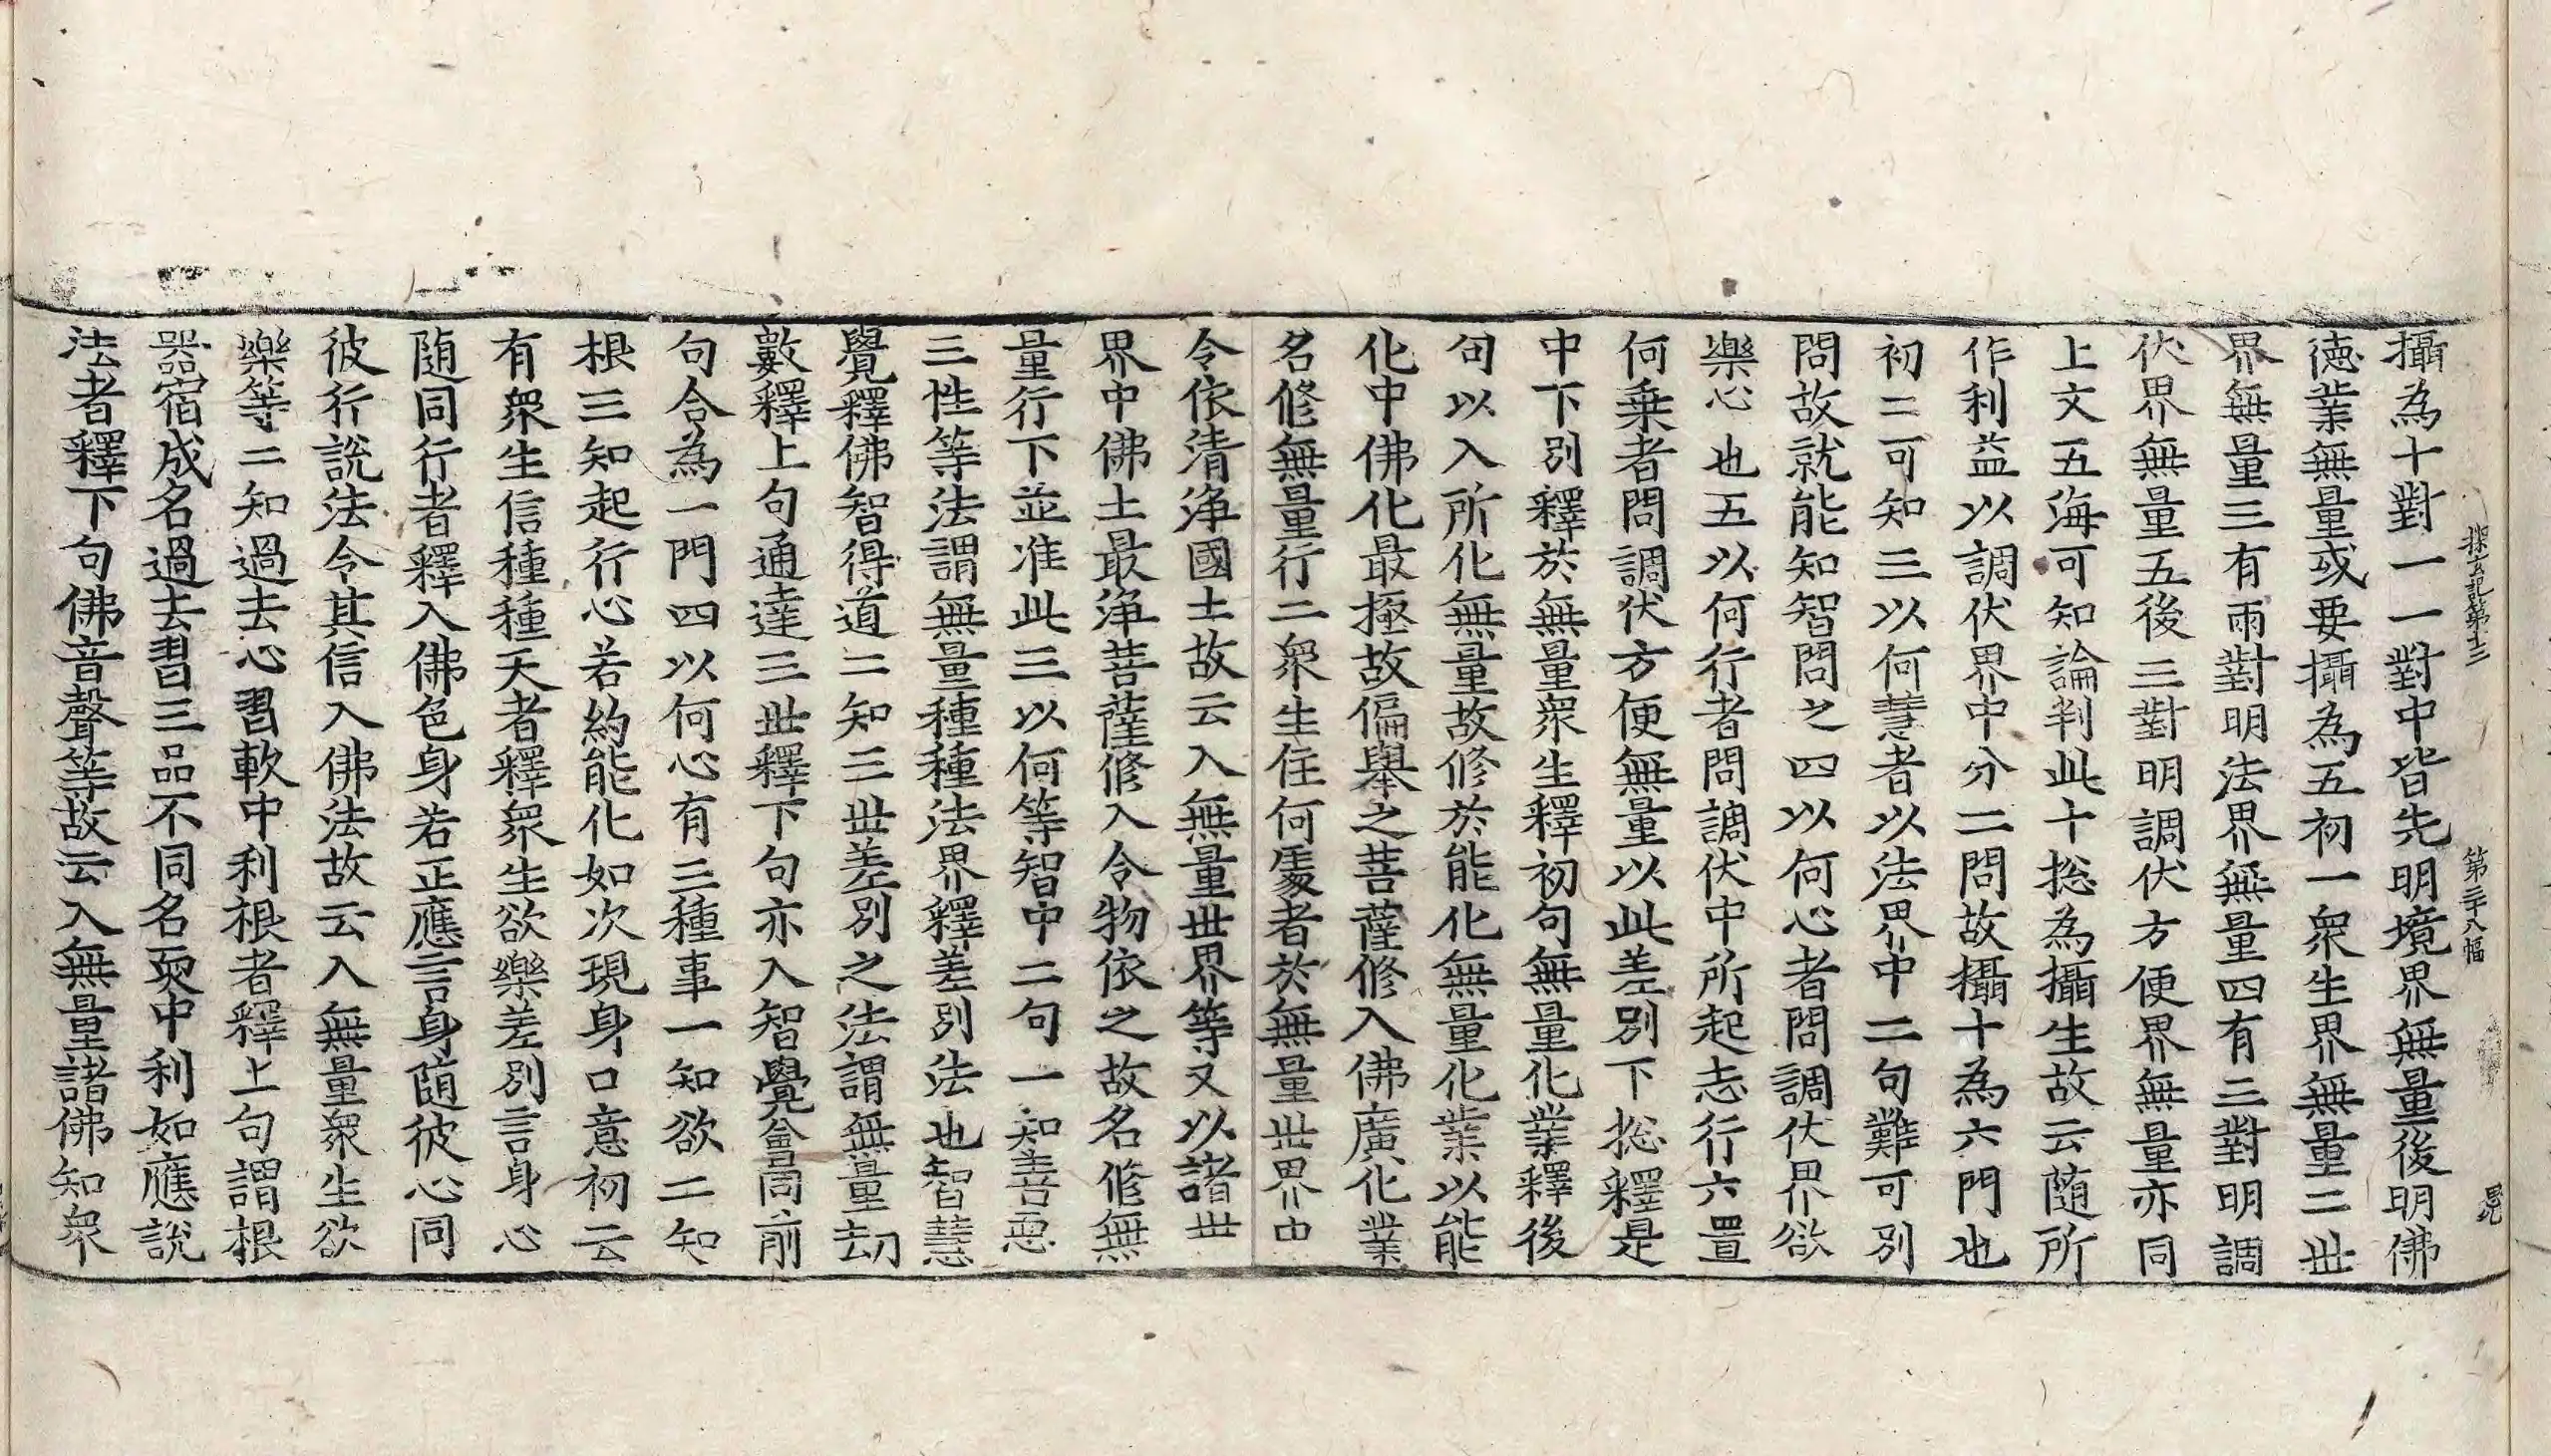 探玄記第十二　第二十八幅　昆
攝為十對一一對中皆先明境界無量後明佛
德業無量或要攝為五初一衆生界無量二世
界無量三有兩對明法界無量四有三對明調
伏界無量五後三對明調伏方便界無量亦同
上文五海可知論判此十揔為攝生故云随所
作利益以調伏界中分二問故攝十為六門也
初二可知三以何慧者以法界中二句難可別
問故就能知智問之四以何心者問調伏界欲
樂心也五以何行者問調伏中所起志行六置
何乗者問調伏方便無量以此差別下揔釋是
中下別釋於無量衆生釋初句無量化業釋後
句以入所化無量故修於能化無量化業以能
化中佛化最極故偏舉之菩薩修入佛廣化業
名修無量行二衆生住何處者於無量世界中
令依清淨國土故云入無量世界等又以諸世
界中佛土最淨菩薩修入令物依之故名修無
量行下並准此三以何等智中二句一知善惡
三性等法謂無量種種法界釋差別法也智慧
覺釋佛智得道二知三世差別之法謂無量劫
數釋上句通達三世釋下句亦入智覺會同前
句合為一門四以何心有三種事一知欲二知
根三知起行心若約能化如次現身口意初云
有衆生信種種天者釋衆生欲樂差別言身心
随同行者釋入佛色身若正應言身随彼心同
彼行說法令其信入佛法故云入無量衆生欲
樂等二知過去心習軟中利根者釋上句謂根
噐宿成名過去習三品不同名耎中利如應說
法者釋下句佛音聲等故云入無量諸佛知衆